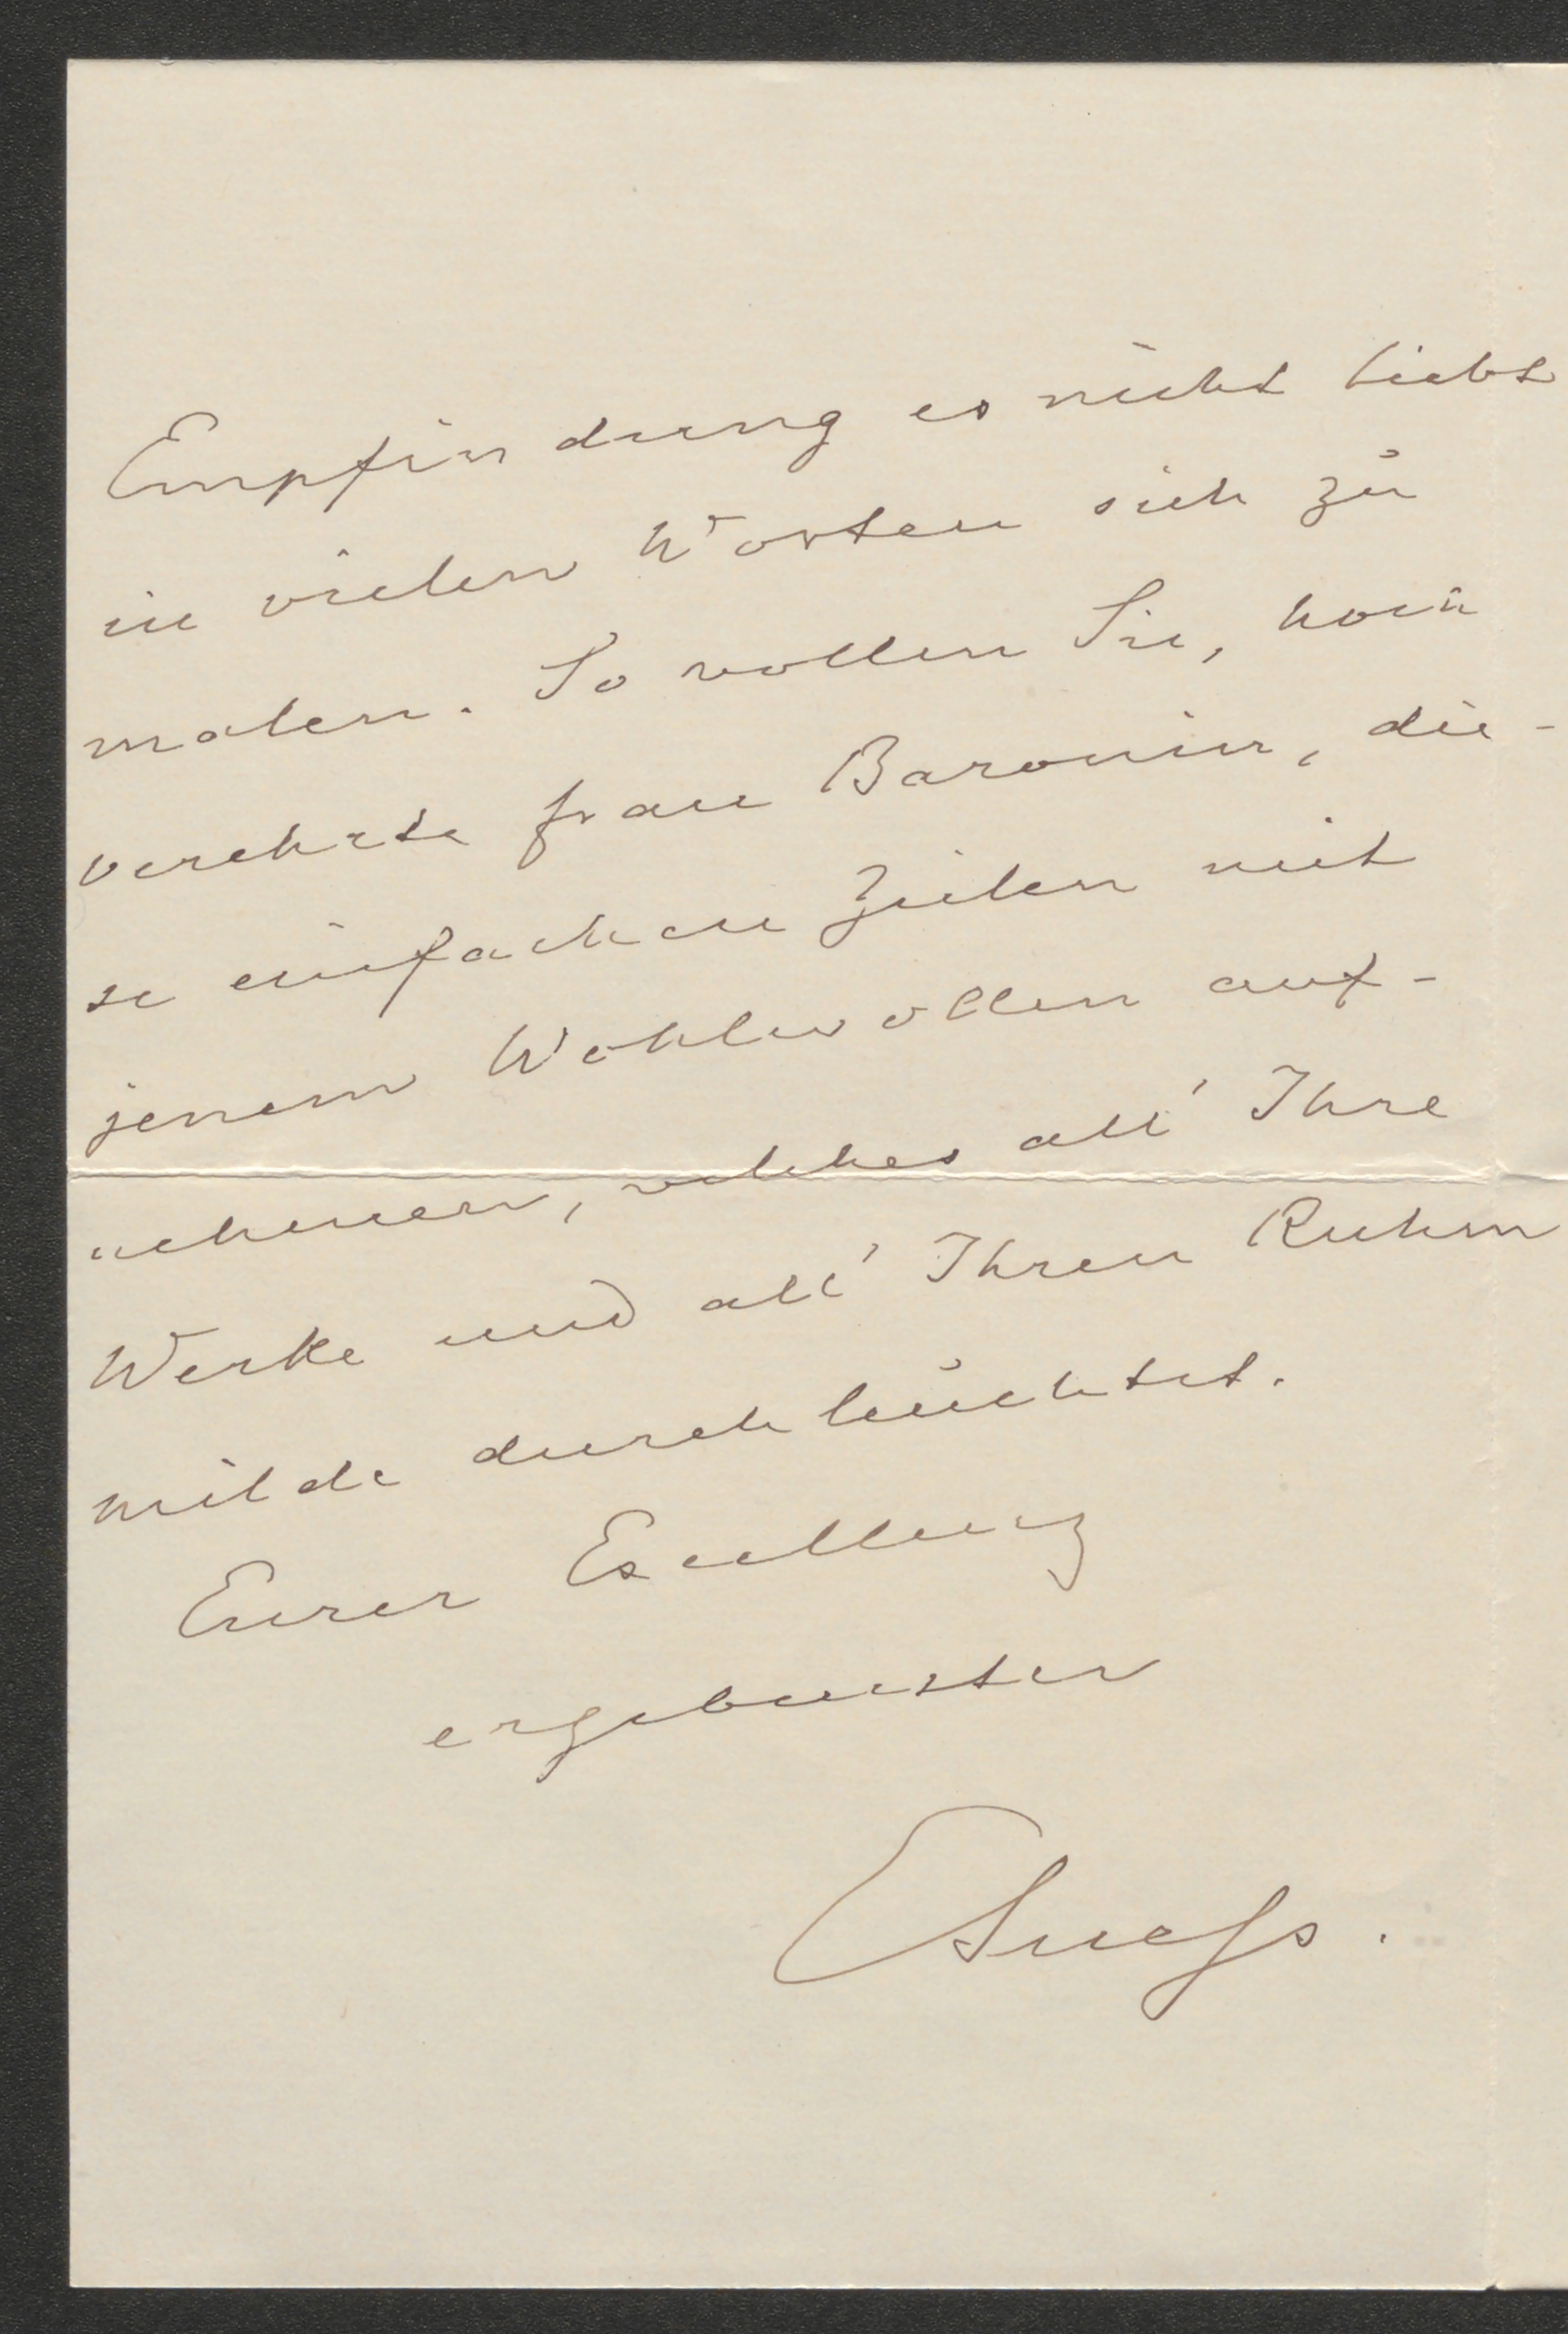 Empfindung es nicht liebt
in vielen Worten sich zu
malen. So wollen Sie, hoch
verehrte Frau Baronin, die-
se einfachen Zeilen mit
jenem Wohlwollen auf-
nehmen, welches all' Ihre
Werke und all' Ihren Ruhm
milde durchleuchtet.
Eurer Excellenz
ergebenster
ESuess.